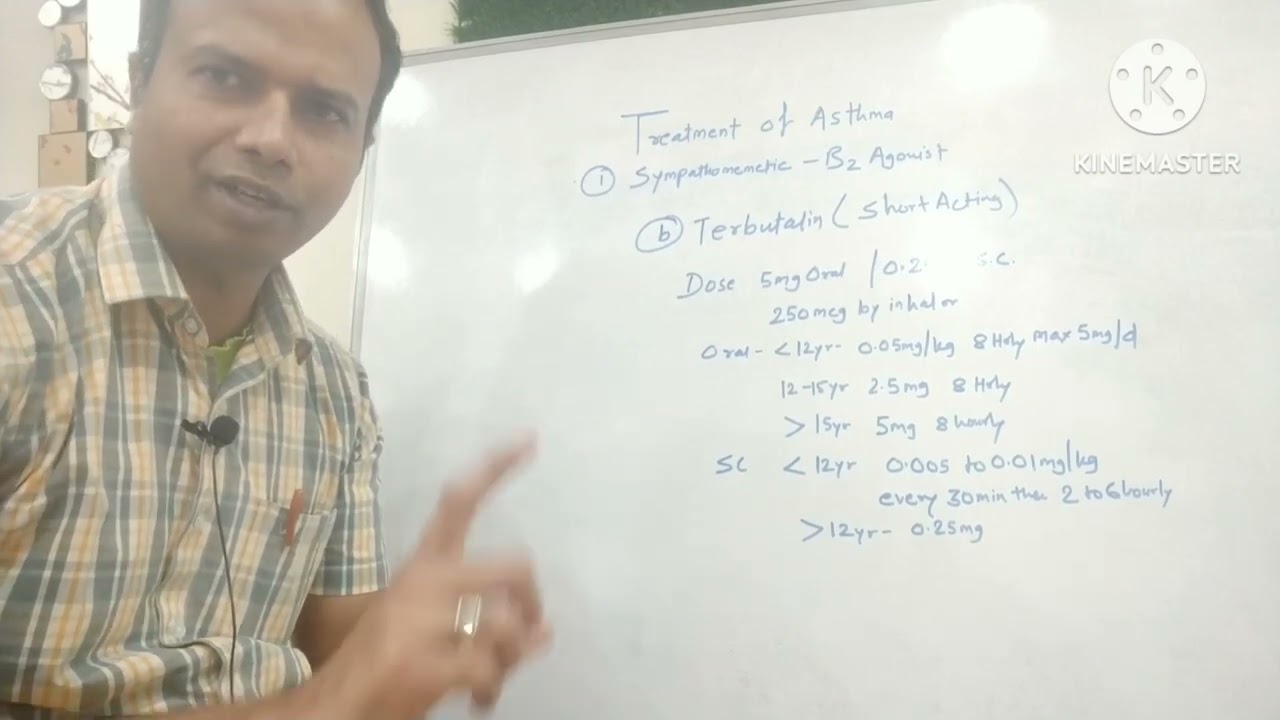 Treatment of Asthma
① Sympathomemetic - B2 Agonist
ⓑ Terbutalin (Short Acting)
Dose 5mg Oral / 0.2 S.C.
250mcg by inhalor
Oral - < 12yr - 0.05mg/kg 8 Holy max 5mg/d
12-15yr 2.5mg 8 Holy
> 15yr 5mg 8 hourly
SC < 12yr 0.005 to 0.01mg/kg
every 30min then 2 to 6 hourly
> 12yr - 0.25mg
K
KINEMASTER